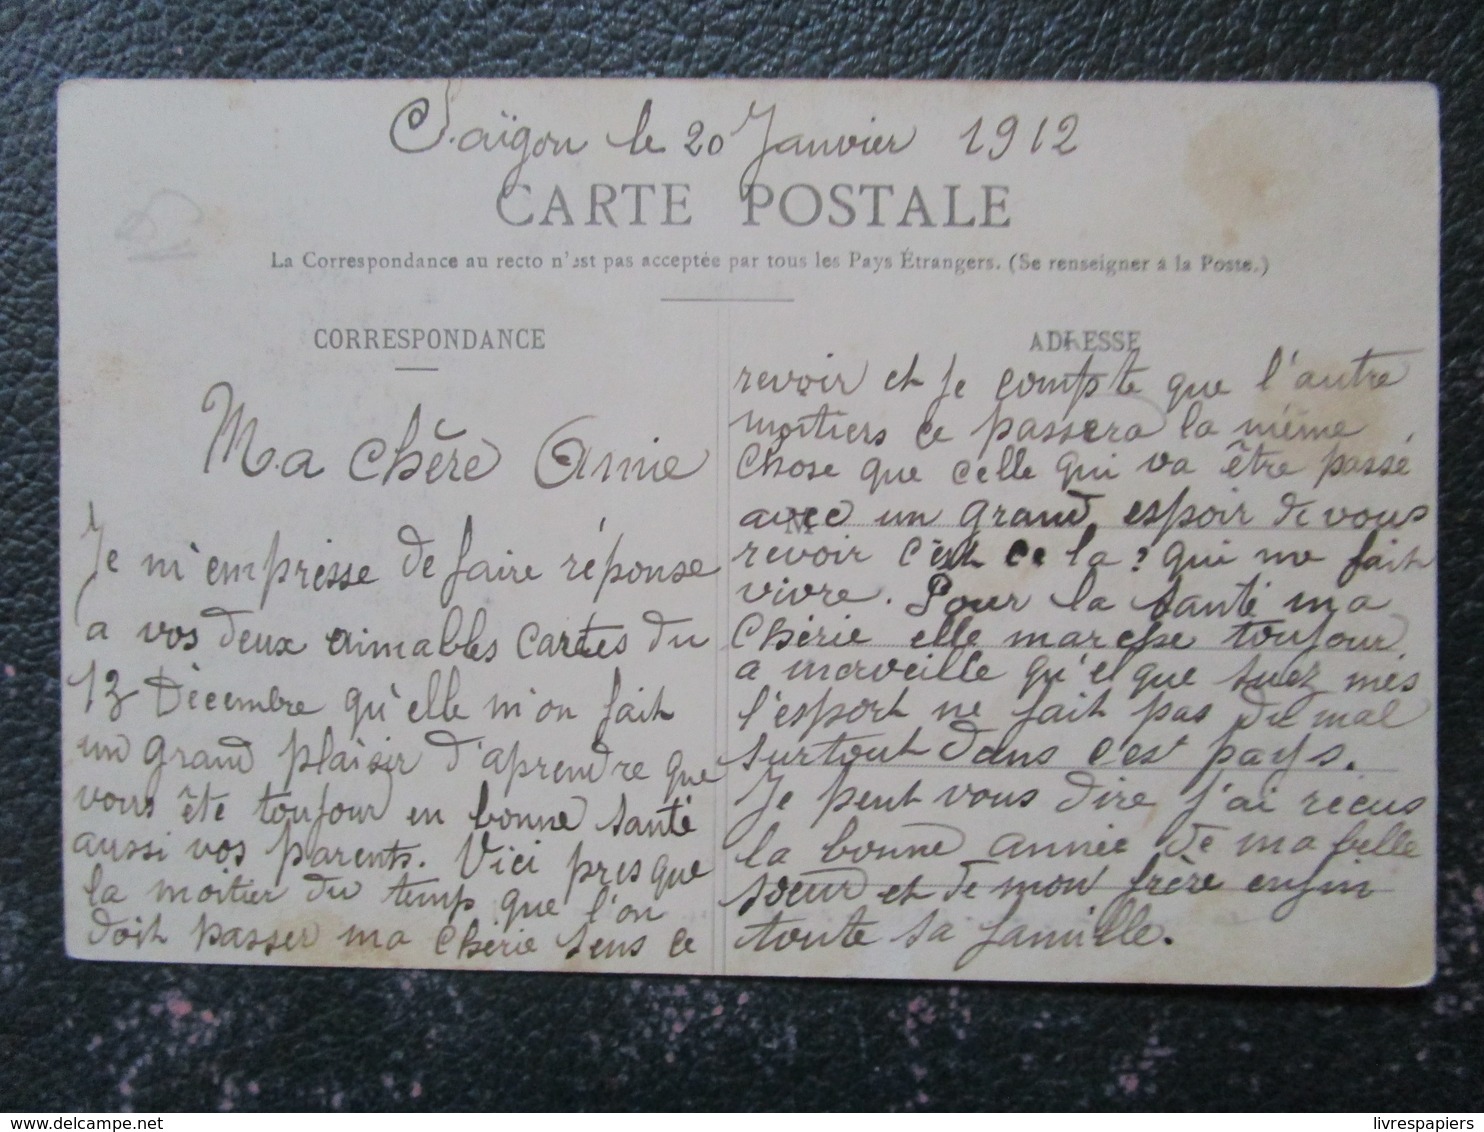 Saïgon le 20 Janvier 1912
CARTE POSTALE
La Correspondance au recto n'est pas acceptée par tous les Pays Étrangers. (Se renseigner à la Poste.)
CORRESPONDANCE
Ma chère Amie
Je m'empresse de faire réponse
a vos deux aimables cartes du
13 Décembre qu'elle m'on fait
un grand plaisir d'aprendre que
vous ête toujour en bonne santé
aussi vos parents. Vici presque
la moitier du temp que l'on
doit passer ma chérie sens ce
ADRESSE
revoir et je compte que l'autre
moitiers ce passera la même
chose que celle qui va être passé
M
avec un grand espoir de vous
revoir c'est ce la ? qui me fait
vivre. Pour la santé ma
chérie elle marche toujour
a merveille qu'elque suez mes
l'esport ne fait pas du mal
surtout dans c'est pays.
Je peut vous dire j'ai recus
la bonne année de ma belle
sœur et de mon frère enfin
toute sa famille.
livrespapiers